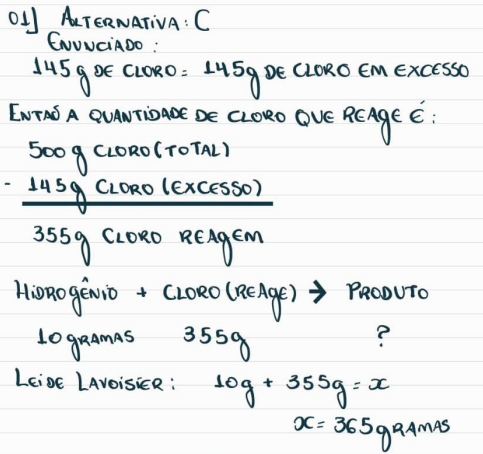 01] ALTERNATIVA: C
ENUNCIADO:
145g DE CLORO = 145g DE CLORO EM EXCESSO
ENTAÕ A QUANTIDADE DE CLORO QUE REAGE É:
500 g CLORO (TOTAL)
- 145g CLORO (EXCESSO)
355g CLORO REAGEM
HIDROGÊNIO + CLORO (REAGE) → PRODUTO
10 GRAMAS 355g ?
LEI DE LAVOISIER: 10g + 355g = x
x = 365 GRAMAS